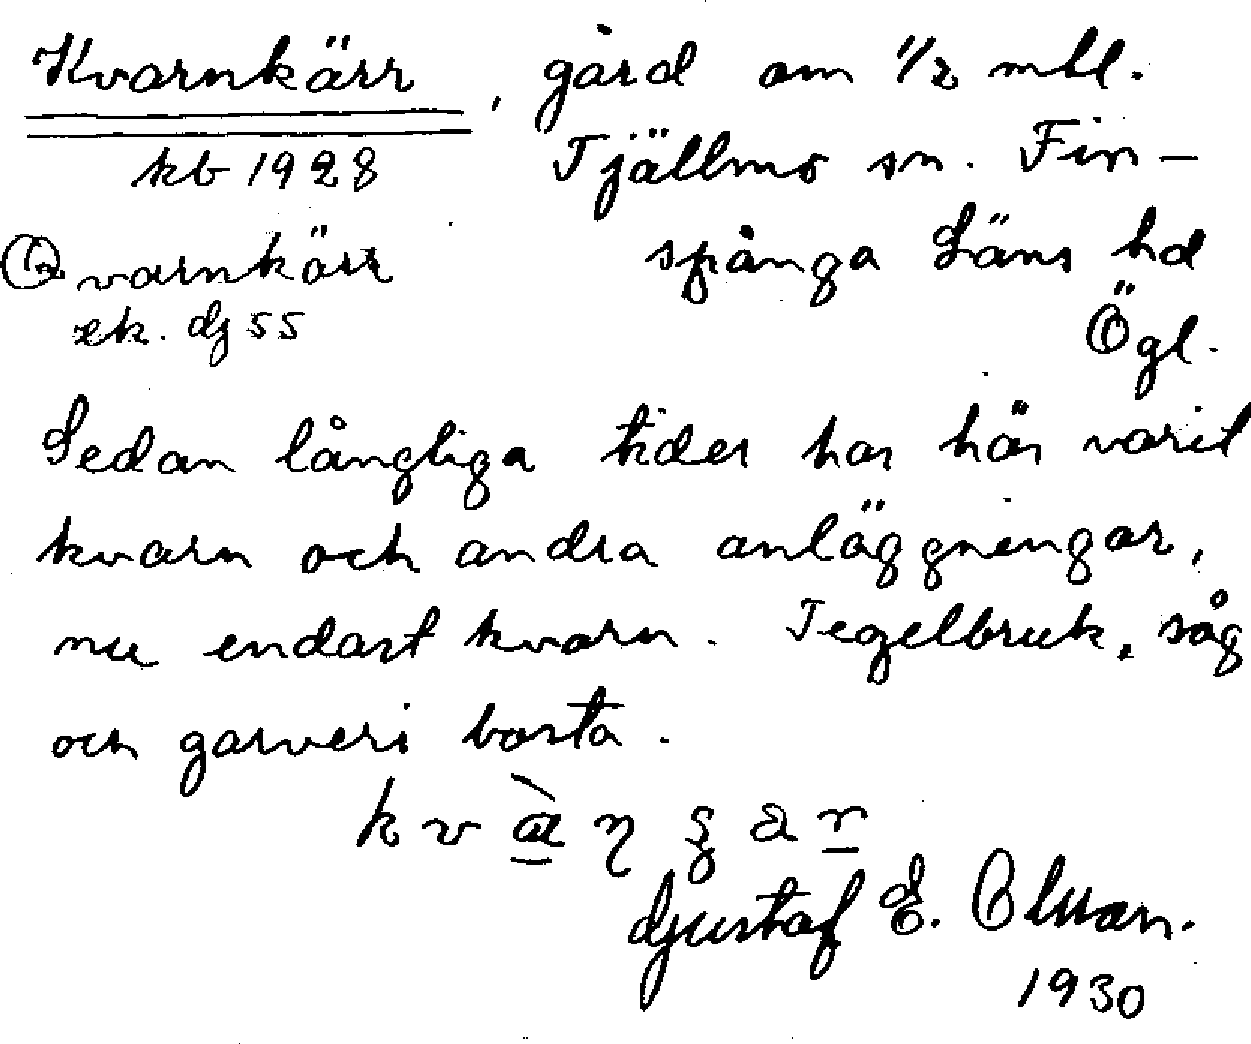 Kvarnkärr, gård om 1/2 mtl.
kb 1928 Tjällmo sn. Fin-
Qvarnkärr spånga Läns hd
ek. dj 55 Ögl.
Sedan långliga tider har här varit
kvarn och andra anläggningar,
nu endast kvarn. Tegelbruk, såg
och garveri borta.
Gustaf E. Olsson.
1930